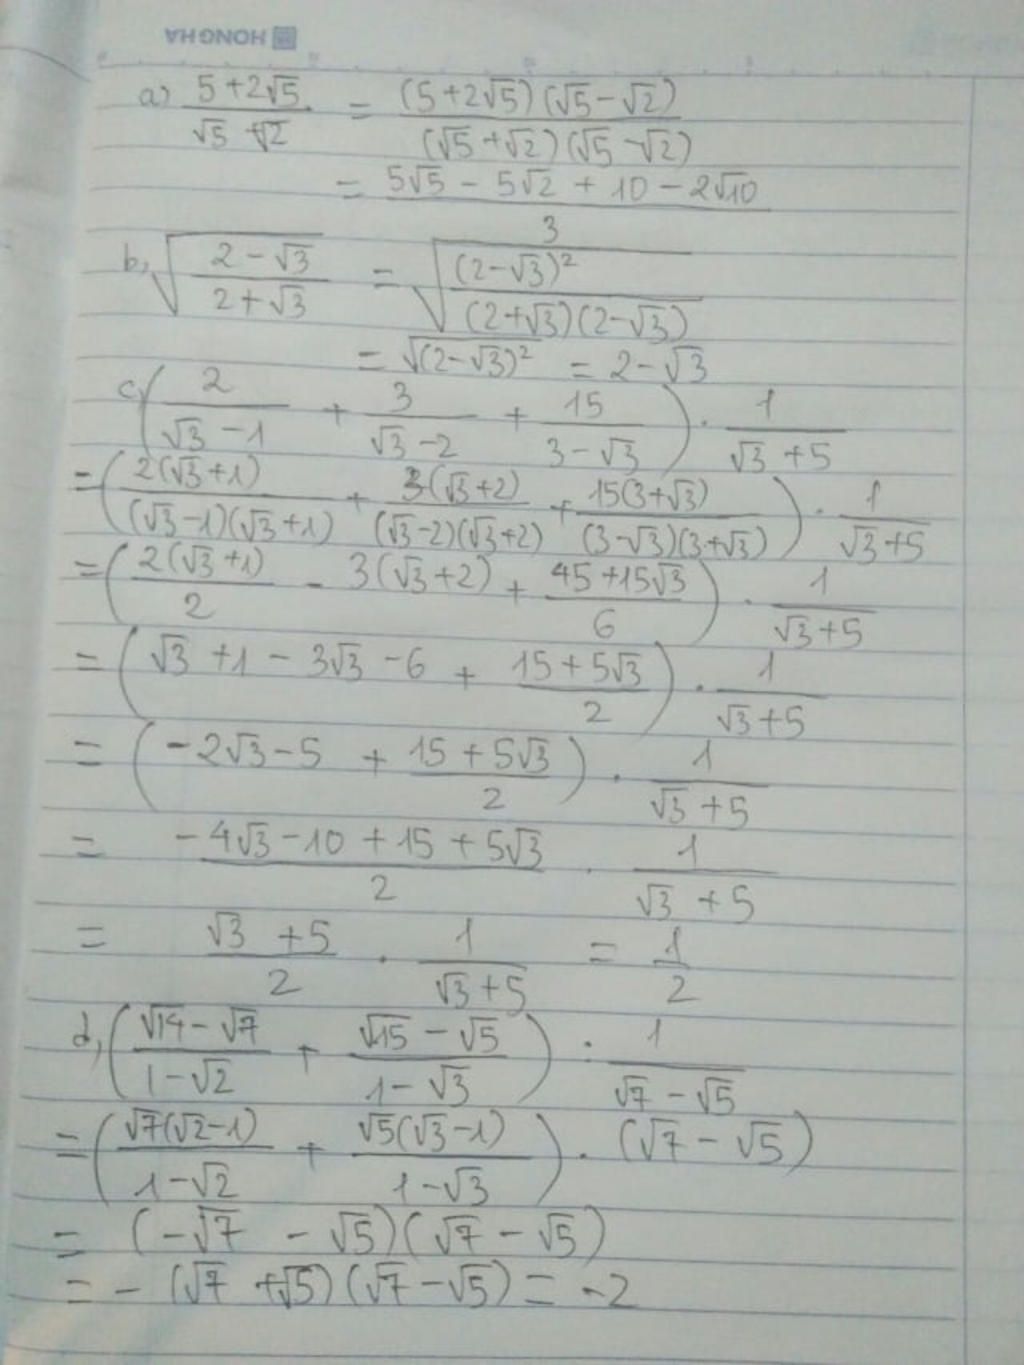 HONGHA
a) (5+2√5)/(√5+√2) = ((5+2√5)(√5-√2))/((√5+√2)(√5-√2))
= (5√5 - 5√2 + 10 - 2√10)/3
b, √((2-√3)/(2+√3)) = √((2-√3)²/((2+√3)(2-√3)))
= √(2-√3)² = 2-√3
c, (2/(√3-1) + 3/(√3-2) + 15/(3-√3)) . 1/(√3+5)
= (2(√3+1)/((√3-1)(√3+1)) + 3(√3+2)/((√3-2)(√3+2)) + 15(3+√3)/((3-√3)(3+√3))) . 1/(√3+5)
= (2(√3+1)/2 - 3(√3+2) + (45+15√3)/6) . 1/(√3+5)
= (√3+1-3√3-6 + (15+5√3)/2) . 1/(√3+5)
= (-2√3-5 + (15+5√3)/2) . 1/(√3+5)
= (-4√3-10+15+5√3)/2 . 1/(√3+5)
= (√3+5)/2 . 1/(√3+5) = 1/2
d, ((√14-√7)/(1-√2) + (√15-√5)/(1-√3)) : 1/(√7-√5)
= (√7(√2-1)/(1-√2) + √5(√3-1)/(1-√3)) . (√7-√5)
= (-√7 - √5)(√7-√5)
= -(√7+√5)(√7-√5) = -2